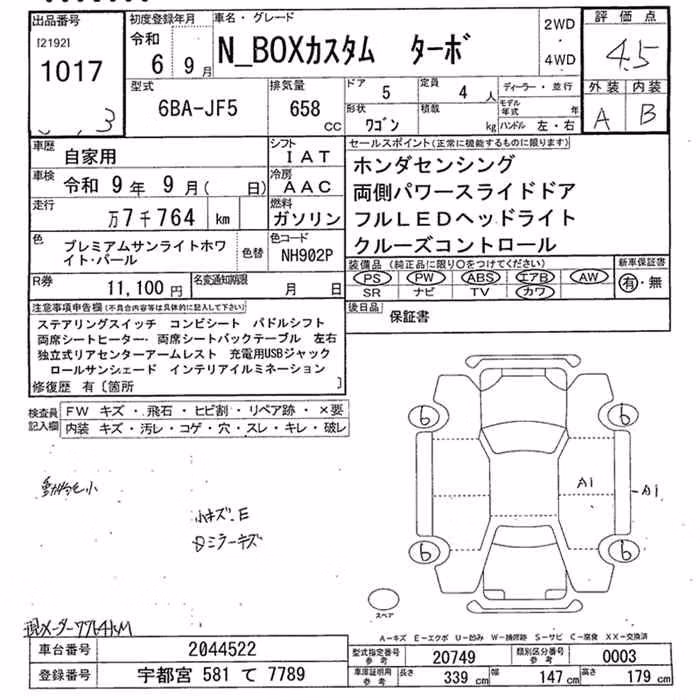 出品番号
[2192]
1017
3
初度登録年月
令和
6 9月
車名・グレード
N_BOXカスタム ターボ
2WD
・
4WD
評価点
4.5
外装 内装
A B
型式
6BA-JF5
排気量
658
CC
ドア
5
定員
4 人
形状
ワゴン
積載
kg
ディーラー・並行
モデル年式 年
ハンドル 左・右
車歴
自家用
シフト
IAT
車検
令和 9年 9月( 日)
冷房
AAC
走行
万7千764 km
燃料
ガソリン
色
プレミアムサンライトホワ
イト・パール
色替
色コード
NH902P
R券
11,100 円
名変通知期限
月 日
セールスポイント(正常に機能するものに限ります)
ホンダセンシング
両側パワースライドドア
フルLEDヘッドライト
クルーズコントロール
装備品(純正品に限り○をつけてください)
PS PW ABS エアB AW
SR ナビ TV カワ
新車保証書
有・無
後日品
保証書
注意事項申告欄(不具合内容等は具体的に記入して下さい)
ステアリングスイッチ コンビシート パドルシフト
両席シートヒーター・両席シートバックテーブル 左右
独立式リアセンターアームレスト 充電用USBジャック
ロールサンシェード インテリアイルミネーション
修復歴 有〔箇所 〕
検査員
記入欄
FW キズ・飛石・ヒビ割・リペア跡・×要
内装 キズ・汚レ・コゲ・穴・スレ・キレ・破レ
小キズ、E
Dミラーキズ
6 6
A1
A1
6 6
スペア
現メーター7764KM
A-キズ E-エクボ U-凹み W-補修跡 S-サビ C-腐食 XX-交換済
車台番号
2044522
登録番号
宇都宮 581 て 7789
型式指定番号
参考
20749
類別区分番号
参考
0003
車庫証明用
参考
長さ 339 cm
幅 147 cm
高さ 179 cm